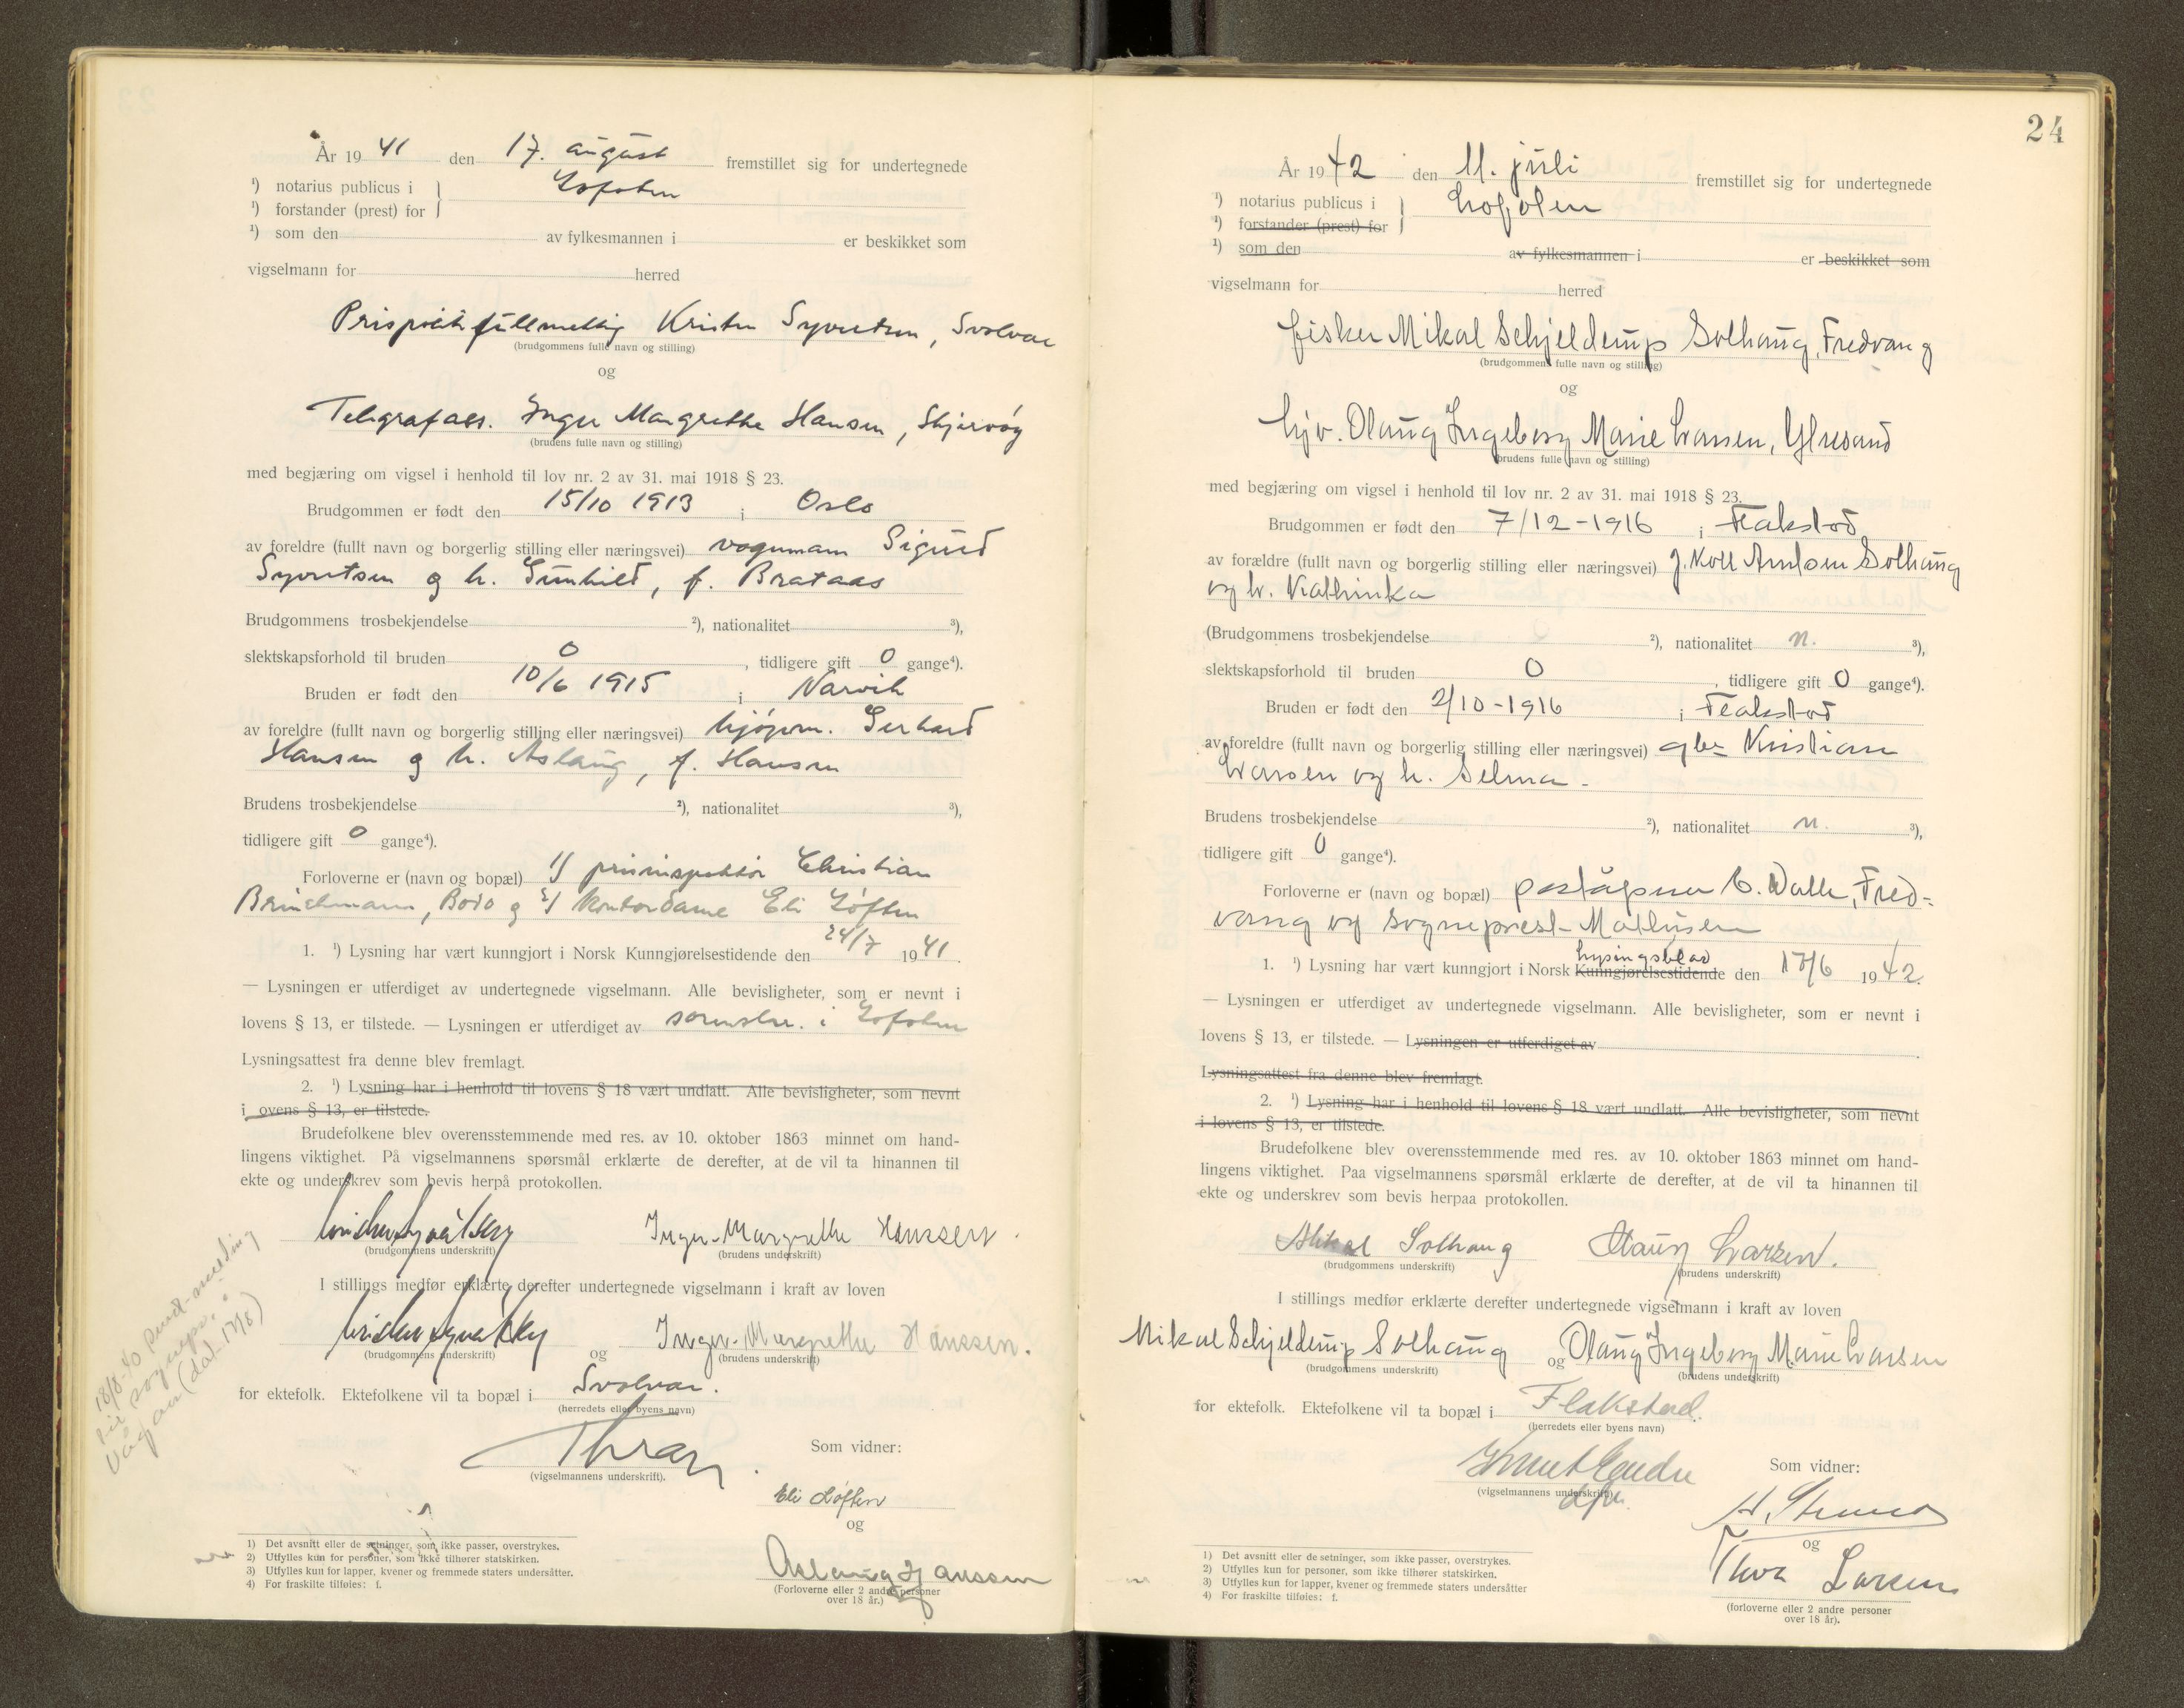 År 19 41 den 17. august fremstillet sig for undertegnede
¹) notarius publicus i } Lofoten
¹) forstander (prest) for
¹) som den av fylkesmannen i er beskikket som
vigselmann for herred
Prispolitifullmektig Kristen Syvertsen, Svolvær
(brudgommens fulle navn og stilling)
og
Telegrafass. Inger Margrethe Hansen, Skjervøy
(brudens fulle navn og stilling)
med begjæring om vigsel i henhold til lov nr. 2 av 31. mai 1918 § 23.
Brudgommen er født den 15/10 1913 i Oslo
av foreldre (fullt navn og borgerlig stilling eller næringsvei) vognmann Sigurd
Syvertsen og h. Gunhild, f. Brataas
Brudgommens trosbekjendelse ²), nationalitet ³),
slektskapsforhold til bruden 0, tidligere gift 0 gange⁴).
Bruden er født den 10/6 1915 i Narvik
av foreldre (fullt navn og borgerlig stilling eller næringsvei) kjøpm. Gerhard
Hansen og h. Aslaug, f. Hansen
Brudens trosbekjendelse ²), nationalitet ³),
tidligere gift 0 gange⁴).
Forloverne er (navn og bopæl) 1) prisinspektør Christian
Brinchmann, Bodø og 2) kontordame Eli Løften
1. ¹) Lysning har vært kunngjort i Norsk Kunngjørelsestidende den 24/7 1941.
— Lysningen er utferdiget av undertegnede vigselmann. Alle bevisligheter, som er nevnt i
lovens § 13, er tilstede. — Lysningen er utferdiget av sorenskr. i Lofoten
Lysningsattest fra denne blev fremlagt.
2. ¹) Lysning har i henhold til lovens § 18 vært undlatt. Alle bevisligheter, som nevnt
i ovens § 13, er tilstede.
Brudefolkene blev overensstemmende med res. av 10. oktober 1863 minnet om hand-
lingens viktighet. På vigselmannens spørsmål erklærte de derefter, at de vil ta hinannen til
ekte og underskrev som bevis herpå protokollen.
Inger-Margrethe Hanssen.
(brudgommens underskrift) (brudens underskrift)
I stillings medfør erklærte derefter undertegnede vigselmann i kraft av loven
og Inger-Margrethe Hanssen.
(brudgommens underskrift) (brudens underskrift)
for ektefolk. Ektefolkene vil ta bopæl i Svolvær.
(herredets eller byens navn)
Som vidner:
(vigselmannens underskrift).
Eli Løften
og
Aslaug Hanssen
(Forloverne eller 2 andre personer
over 18 år.)
1) Det avsnitt eller de setninger, som ikke passer, overstrykes.
2) Utfylles kun for personer, som ikke tilhører statskirken.
3) Utfylles kun for lapper, kvener og fremmede staters undersåtter.
4) For fraskilte tilføies: f.
18/8-40 sendt melding
til sogneprs. i
Vågan (dat. 17/8)
24
År 1942 den 11. juli fremstillet sig for undertegnede
¹) notarius publicus i } Lofoten
¹) forstander (prest) for
¹) som den av fylkesmannen i er beskikket som
vigselmann for herred
fisker Mikal Schjelderup Solhaug, Fredvang
(brudgommens fulle navn og stilling)
og
hjv. Olaug Ingeborg Marie Larsen, Ytresand
(brudens fulle navn og stilling)
med begjæring om vigsel i henhold til lov nr. 2 av 31. mai 1918 § 23.
Brudgommen er født den 7/12-1916 i Flakstad
av forældre (fullt navn og borgerlig stilling eller næringsvei) J. Koll Arntsen Solhaug
og h. Kathinka
(Brudgommens trosbekjendelse ²), nationalitet n. ³),
slektskapsforhold til bruden 0, tidligere gift 0 gange⁴).
Bruden er født den 2/10-1916 i Flakstad
av foreldre (fullt navn og borgerlig stilling eller næringsvei) gbr Kristian
Larsen og h. Selma -
Brudens trosbekjendelse ²), nationalitet n. ³),
tidligere gift 0 gange⁴).
Forloverne er (navn og bopæl) poståpner C. Walle, Fred-
vang og sogneprest Mathisen
lysingsblad
1. ¹) Lysning har vært kunngjort i Norsk Kunngjørelsestidende den 17/6 1942.
— Lysningen er utferdiget av undertegnede vigselmann. Alle bevisligheter, som er nevnt i
lovens § 13, er tilstede. — Lysningen er utferdiget av
Lysningsattest fra denne blev fremlagt.
2. ¹) Lysning har i henhold til lovens § 18 vært undlatt. Alle bevisligheter, som nevnt
i lovens § 13, er tilstede.
Brudefolkene blev overensstemmende med res. av 10. oktober 1863 minnet om hand-
lingens viktighet. Paa vigselmannens spørsmål erklærte de derefter, at de vil ta hinannen til
ekte og underskrev som bevis herpaa protokollen.
Mikal Solhaug Olaug Larsen.
(brudgommens underskrift) (brudens underskrift)
I stillings medfør erklærte derefter undertegnede vigselmann i kraft av loven
Mikal Schjelderup Solhaug og Olaug Ingeborg Marie Larsen
(brudgommens underskrift) (brudens underskrift)
for ektefolk. Ektefolkene vil ta bopæl i Flakstad.
(herredets eller byens navn)
Som vidner:
(vigselmannens underskrift).
og
Thora Larsen
(forloverne eller 2 andre personer
over 18 år).
1) Det avsnitt eller de setninger, som ikke passer, overstrykes.
2) Utfylles kun for personer, som ikke tilhører statskirken.
3) Utfylles kun for lapper, kvener og fremmede staters undersåtter
4) For fraskilte tilføies: f.